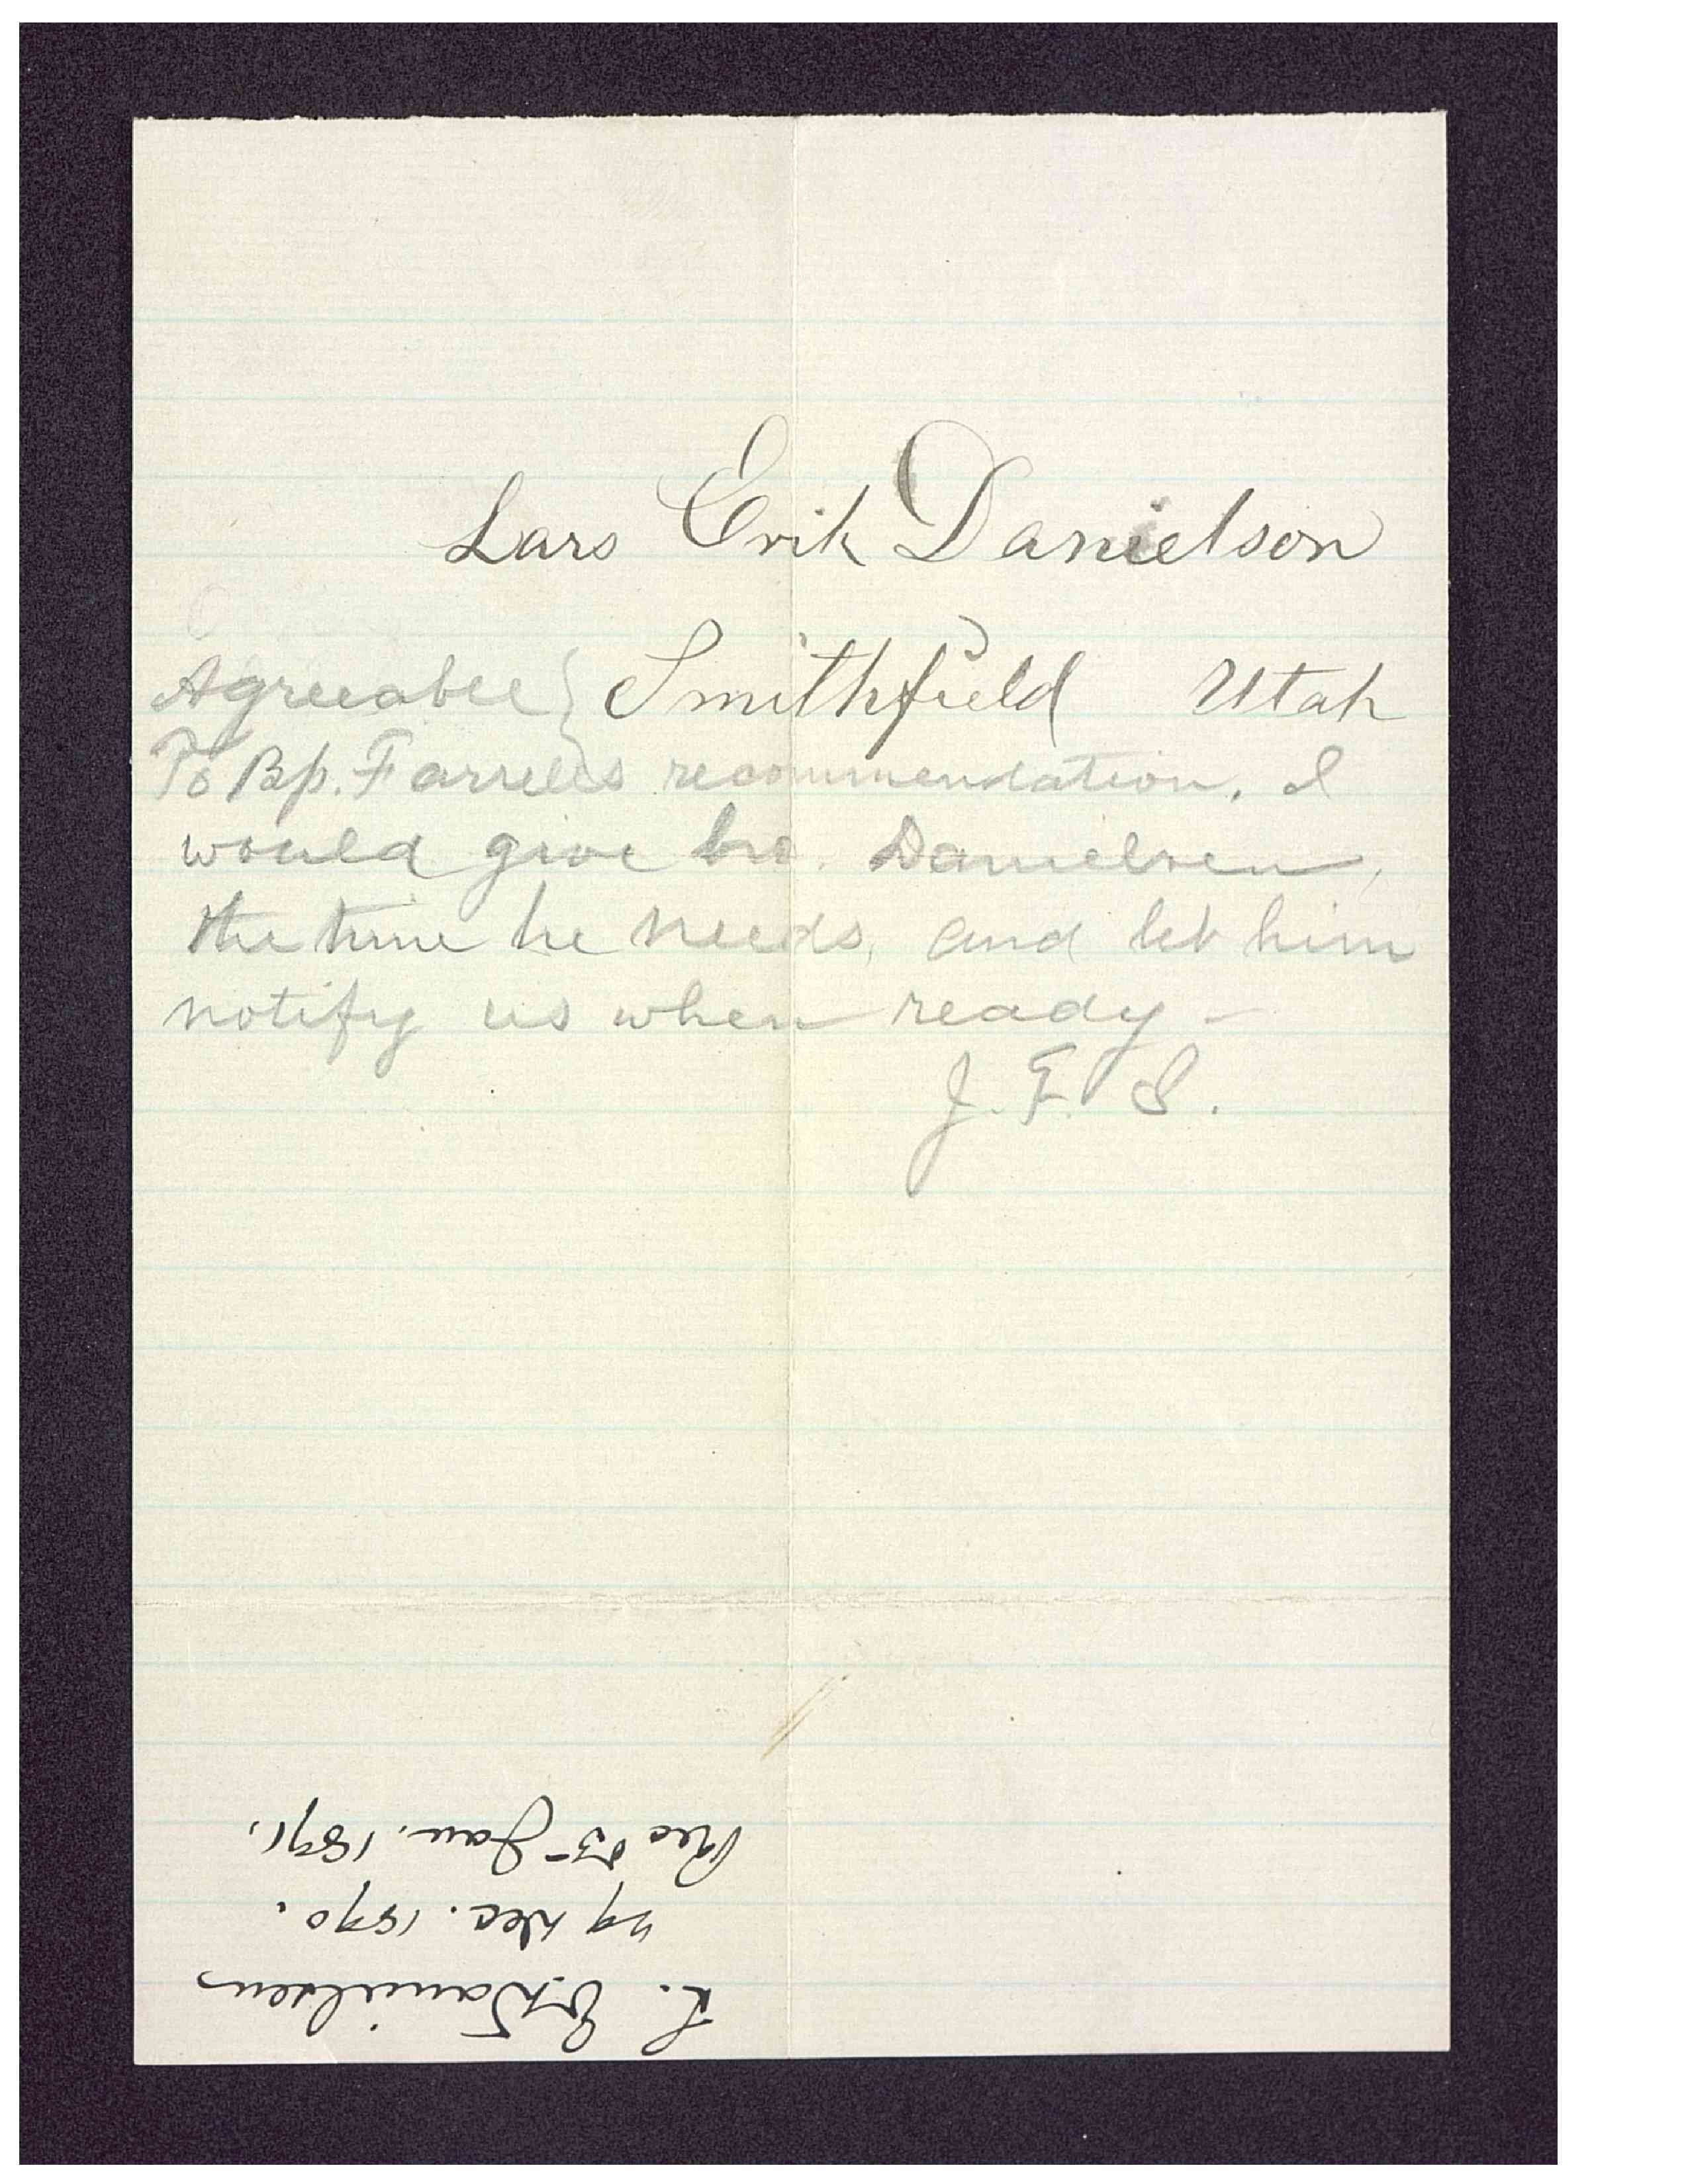 Lars Erik Danielson
Smithfield Utah
Agreeable }
To Bp. Farrells recommendation. I
would give bro. Danielsen,
the time he needs, and let him
notify us when ready –
J. F. S.
L. E. Danielsen
29 Dec. 1890.
Recd 5 Jan. 1891.